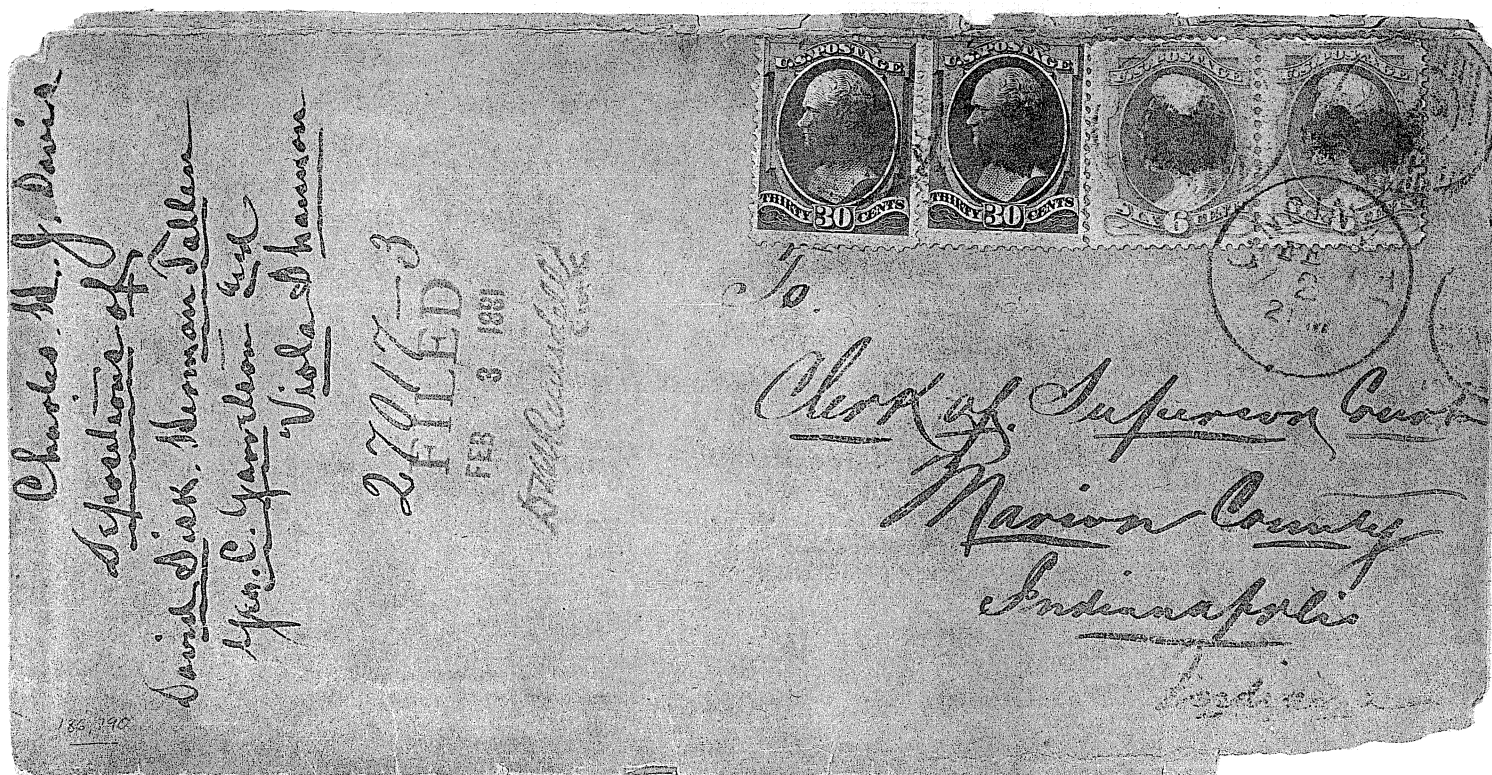 Charles H. J. Davis
Depositions of
David Sisk. Herman Tallen
Geo. C. and
Viola Shannon
27017-3
FILED
FEB 3 1881
U.S. POSTAGE
THIRTY 30 CENTS
U.S. POSTAGE
THIRTY 30 CENTS
U.S. POSTAGE
SIX 6 CENTS
U.S. POSTAGE
FEB
2
To.
Clerk of Superior Court
Marion County
Indianapolis
Indiana
186,790